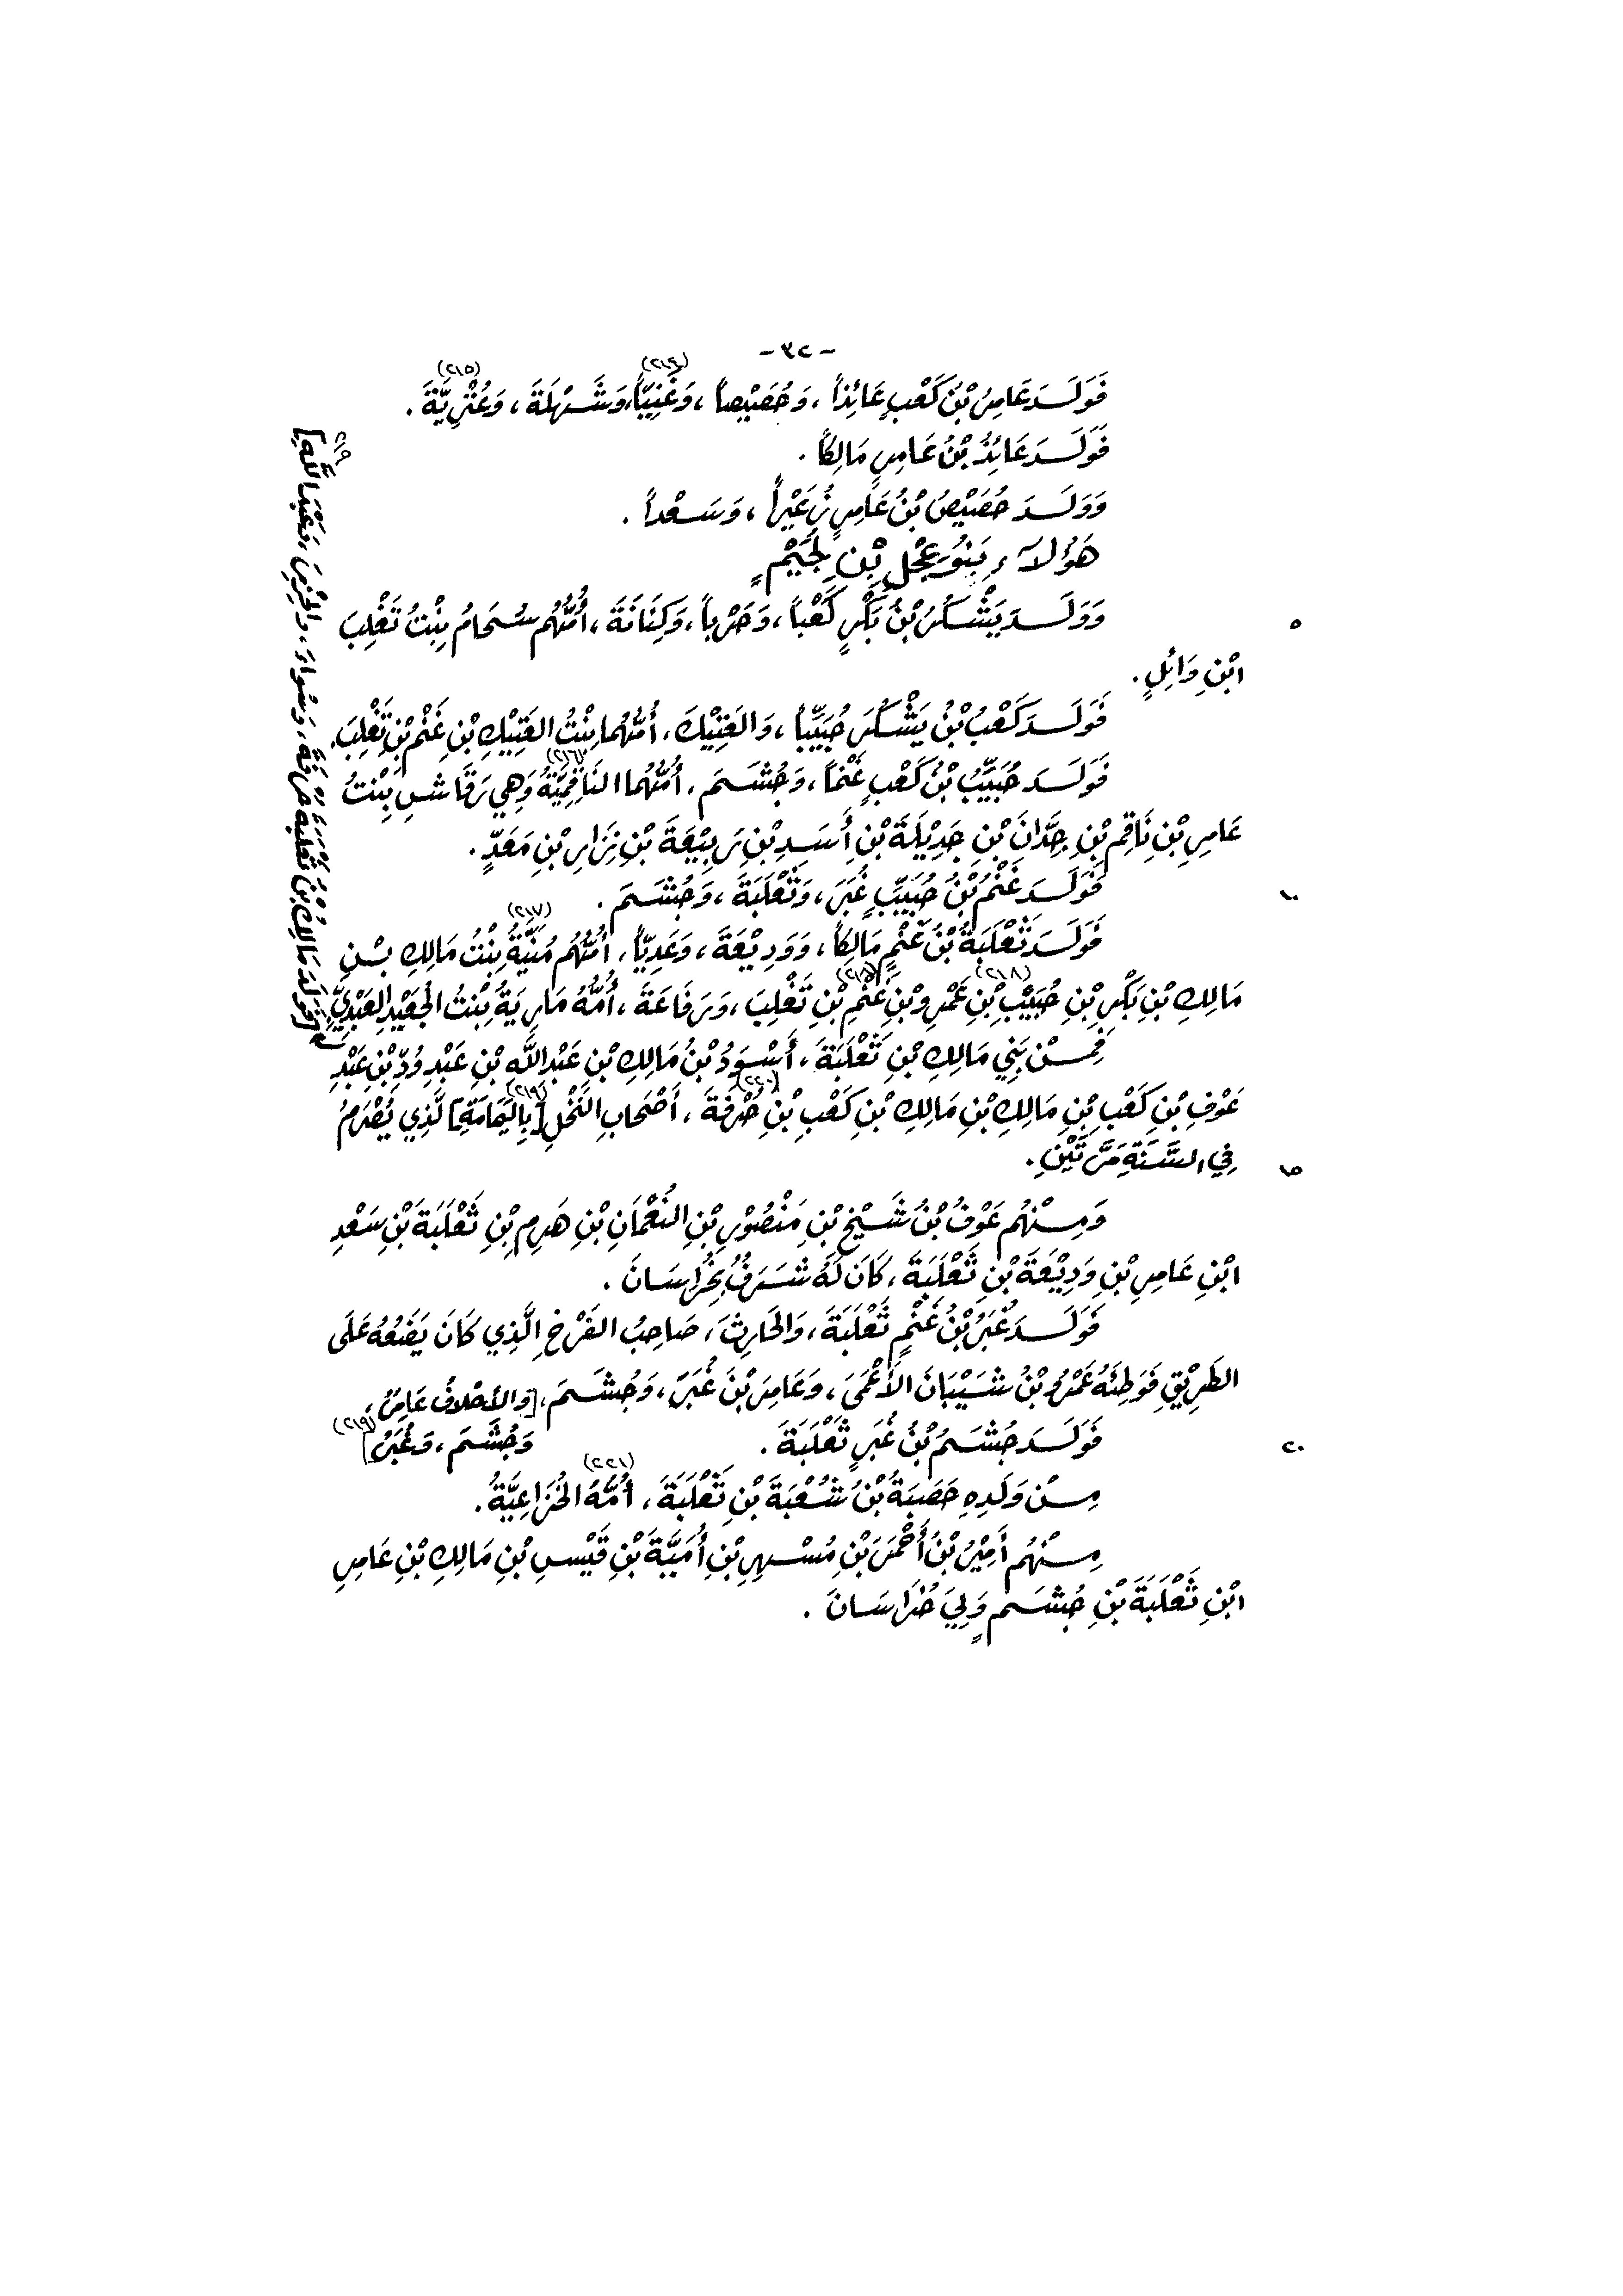 - ٣٢ -
فَوَلَدَ عَامِرُ بْنُ كَعْبٍ عَائِذاً، وَحُصَيْصاً، وَغَنِيّاً (٢١٤)، وَشَهْلَةَ، وَعُنْزِيَّةَ (٢١٥).
فَوَلَدَ عَائِذُ بْنُ عَامِرٍ مَالِكاً.
وَوَلَدَ حُصَيْصُ بْنُ عَامِرٍ زُعَيْراً، وَسَعْداً.
هَؤُلاَءِ بَنُو عِجْلِ بْنِ لُجَيْمٍ
٥ وَوَلَدَ يَشْكُرُ بْنُ بَكْرٍ كَعْباً، وَحَرْباً، وَكِنَانَةَ، أُمُّهُم سُحَامُ بِنْتُ تَغْلِبَ
ابْنِ وَائِلٍ.
فَوَلَدَ كَعْبُ بْنُ يَشْكُرَ حُبَيِّباً، وَالعَتِيْكَ، أُمُّهُمَا بِنْتُ العَتِيْكِ بْنِ غَنْمِ بْنِ تَغْلِبَ.
فَوَلَدَ حُبَيِّبُ بْنُ كَعْبٍ غَنْماً، وَجُشَمَ، أُمُّهُما النَاقِمِيَّةُ (٢١٦) وَهِي رَقَاشِ بِنْتُ
عَامِرِ بْنِ نَاقِمِ بْنِ جِدَّانَ بْنِ جَدِيْلَةَ بْنِ أَسَدِ بْنِ رَبِيْعَةَ بْنِ نِزَارِ بْنِ مَعَدٍّ.
١٠ فَوَلَدَ غَنْمُ بْنُ حُبَيِّبٍ غُبَرَ، وَثَعْلَبَةَ، وَجُشَمَ.
فَوَلَدَ ثَعْلَبَةُ بْنُ غَنْمٍ مَالِكاً، وَوَدِيْعَةَ، وَعَدِيّاً، أُمُّهُم مُنَيَّةُ (٢١٧) بِنْتُ مَالِكِ بْنِ
مَالِكِ بْنِ بَكْرِ بْنِ حُبَيْبِ (٢١٨) بْنِ عَمْرِو بْنِ غَنْمِ (٢١٨) بْنِ تَغْلِبَ، وَرَفَاعَةَ، أُمُّهُ مَارِيَةُ بِنْتُ الجُعَيْدِ العَبْدِيِّ.
[فَوَلَدَ مَالِكُ بْنُ ثَعْلَبَةَ حُرْفَةَ، وَسُوَاءَ، وَالحِرْمِزَ، وَعَبْدَ اللَّهِ] ٢١٩
فَمِنْ بَنِي مَالِكِ بْنِ ثَعْلَبَةَ، أَسْوَدُ بْنُ مَالِكِ بْنِ عَبْدِ اللَّهِ بْنِ عَبْدِ وُدِّ بْنِ عَبْدِ
عَوْفِ بْنِ كَعْبِ بْنِ مَالِكِ بْنِ مَالِكِ بْنِ كَعْبِ بْنِ حُرْفَةَ (٢٢٠)، أَصْحَابِ النَخْلِ [بِاليَمَامَةِ] (٢١٩) الَّذِي يُصْرَمُ
١٥ فِي السَّنَةِ مَرَّتَيْنِ.
وَمِنْهُم عَوْفُ بْنُ شَيْخِ بْنِ مَنْصُوْرِ بْنِ النُعْمَانِ بْنِ هَرِمِ بْنِ ثَعْلَبَةَ بْنِ سَعْدِ
ابْنِ عَامِرِ بْنِ وَدِيْعَةَ بْنِ ثَعْلَبَةَ، كَانَ لَهُ شَرَفٌ بِخُرَاسَانَ.
فَوَلَدَ غُبَرُ بْنُ غَنْمٍ ثَعْلَبَةَ، وَالحَارِثَ، صَاحِبُ الفَرْخِ الَّذِي كَانَ يَضَعُهُ عَلَى
الطَرِيْقِ فَوَطِئَهُ عَمْرُو بْنُ شَيْبَانَ الأَعْمَى، وَعَامِرَ بْنَ غُبَرَ، وَجُشَمَ، [وَالأَحْلافُ عَامِرٌ،
٢٠ فَوَلَدَ جُشَمُ بْنُ غُبَرٍ ثَعْلَبَةَ. وَجُشَمَ، وَغُبَرُ] (٢١٩)
مِنْ وَلَدِهِ حَصَبَةُ بْنُ شُعْبَةَ بْنِ ثَعْلَبَةَ، أُمُّهُ (٢٢١) الخُزَاعِيَّةُ.
مِنْهُم أَمِيْرُ بْنُ أَحْمَرَ بْنِ مُسْهِرِ بْنِ أُمَيَّةَ بْنِ قَيْسِ بْنِ مَالِكِ بْنِ عَامِرِ
ابْنِ ثَعْلَبَةَ بْنِ جُشَمٍ وَلِيَ خُرَاسَانَ.